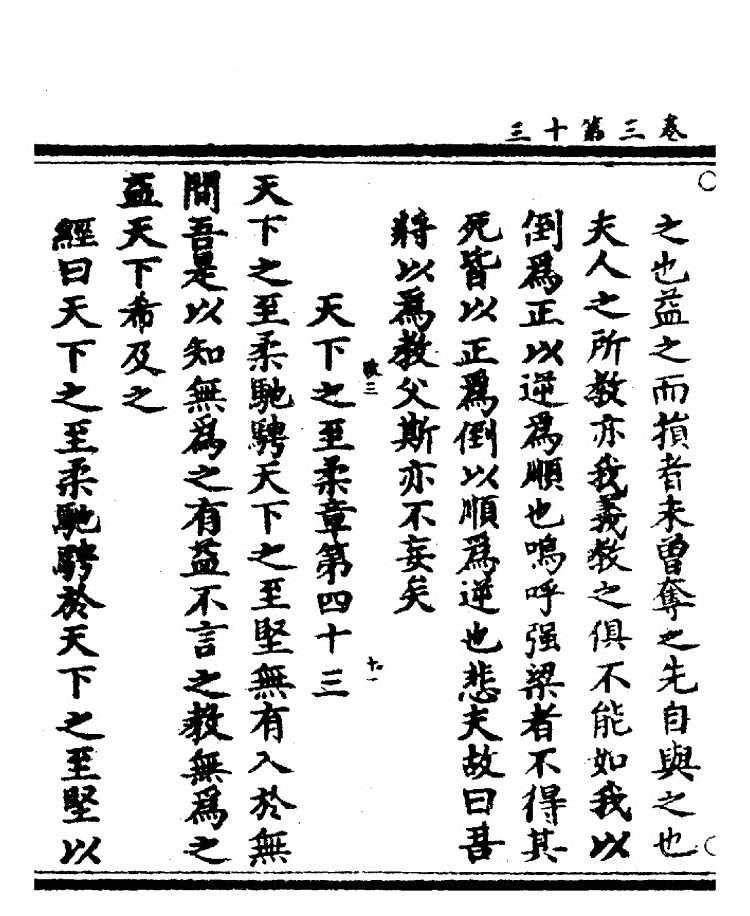 卷三第十三
之也益之而損者未曾奪之先自與之也
夫人之所教亦我義教之俱不能如我以
倒爲正以逆爲順也嗚呼强梁者不得其
死皆以正爲倒以順爲逆也悲夫故曰吾
將以爲教父斯亦不妄矣
天下之至柔章第四十三
天下之至柔馳騁天下之至堅無有入於無
間吾是以知無爲之有益不言之教無爲之
益天下希及之
經曰天下之至柔馳騁於天下之至堅以